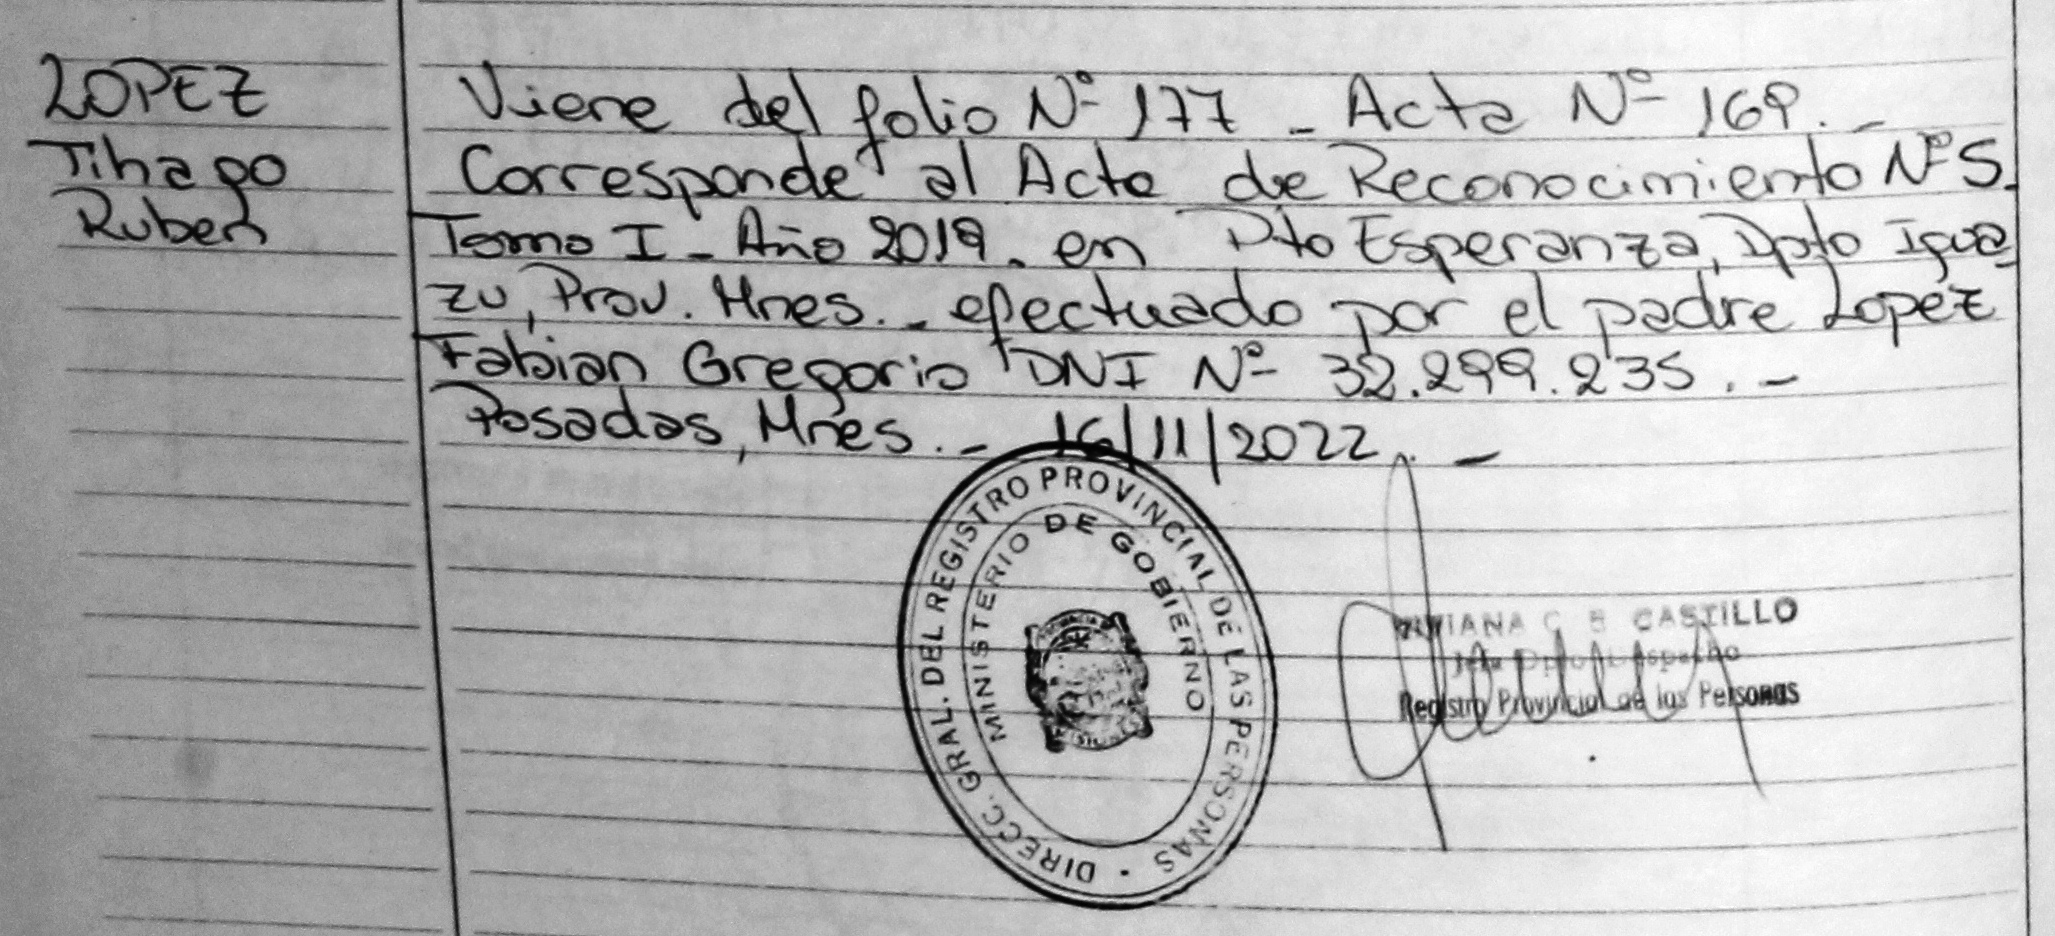 LOPEZ
Tihago
Ruben
Viene del folio Nº 177 - Acta Nº 169. -
Corresponde al Acta de Reconocimiento Nº 5.
Tomo I - Año 2019. en Pto Esperanza, Dpto Igua-
zu, Prov. Mnes. - efectuado por el padre Lopez
Fabian Gregorio DNI Nº 32.299.235. -
Posadas, Mnes. - 16/11/2022. -
DIRECC. GRAL. DEL REGISTRO PROVINCIAL DE LAS PERSONAS
MINISTERIO DE GOBIERNO
CASTILLO
Registro Provincial de las Personas